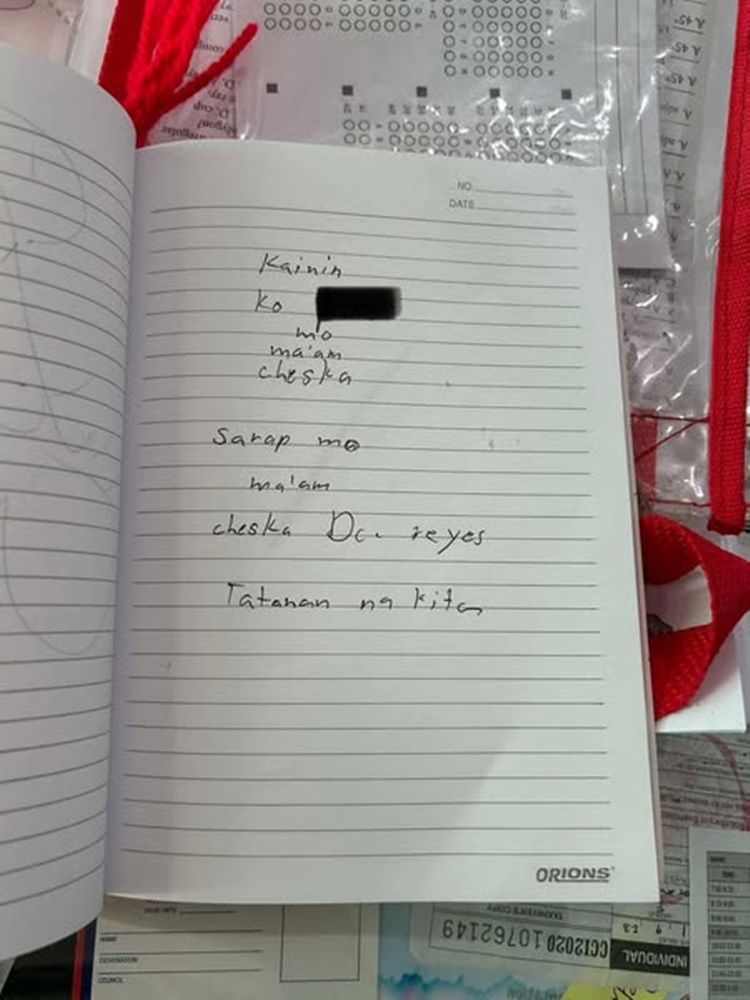 NO.
DATE
Kainin
Ko
mo
ma'am
cheska
Sarap mo
ma'am
cheska Dc. reyes
Tatanan na kita
ORIONS
CCI2020 10762149
INDIVIDUAL
TAXPAYER'S COPY